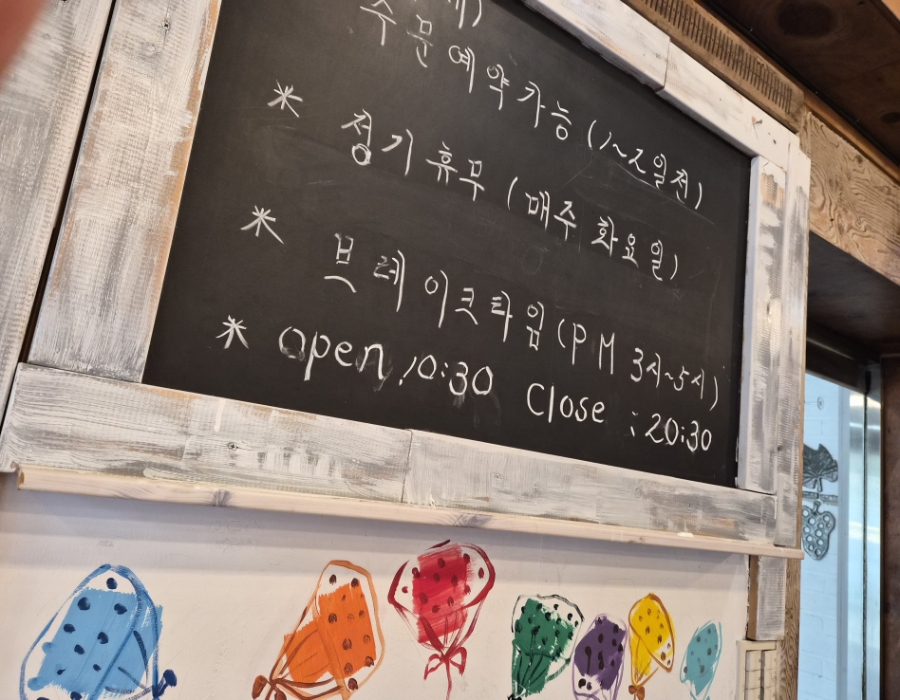 주문예약가능 (1~2일전)
* 정기휴무 (매주 화요일)
* 브레이크타임 (PM 3시~5시)
* open 10:30 Close : 20:30